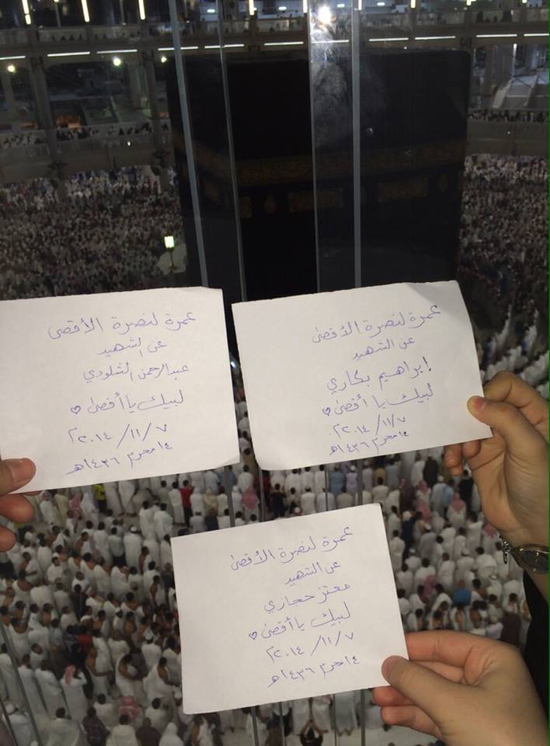 عمرة لنصرة الأقصى
عن الشهيد
عبدالرحمن الشلودي
لبيك يا أقصى ♡
٢٠١٤/١١/٧
١٤ محرم ١٤٣٦هـ
عمرة لنصرة الأقصى
عن الشهيد
إبراهيم بكاري
لبيك يا أقصى ♡
٢٠١٤/١١/٧
١٤ محرم ١٤٣٦هـ
عمرة لنصرة الأقصى
عن الشهيد
معتز حجازي
لبيك يا أقصى ♡
٢٠١٤/١١/٧
١٤ محرم ١٤٣٦هـ